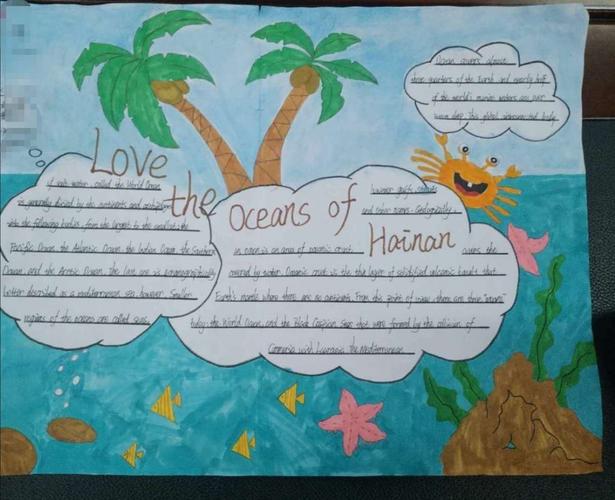 Love the Oceans of Hainan
Ocean covers almost
three quarters of the Earth and nearly half
of the world's marine waters are over
deep. This global, interconnected body
of salt water, called the World Ocean
is generally divided by the continents and
with the following bodies, from the largest to the smallest: the
Pacific Ocean, the Atlantic Ocean, the Indian Ocean, the Southern
Ocean, and the Arctic Ocean, the last one is
better described as a mediterranean sea, however. Smaller
regions of the oceans are called seas,
gulfs, straits
and other names. Geologically,
an ocean is an area of oceanic crust
covered by water. Oceanic crust is the thin layer of solidified volcanic basalt that
covers the
Earth's mantle where there are no continents. From this point of view, there are three "oceans"
today: the World Ocean, and the Black Caspian Seas that were formed by the collision of
with Laurasia. The Mediterranean